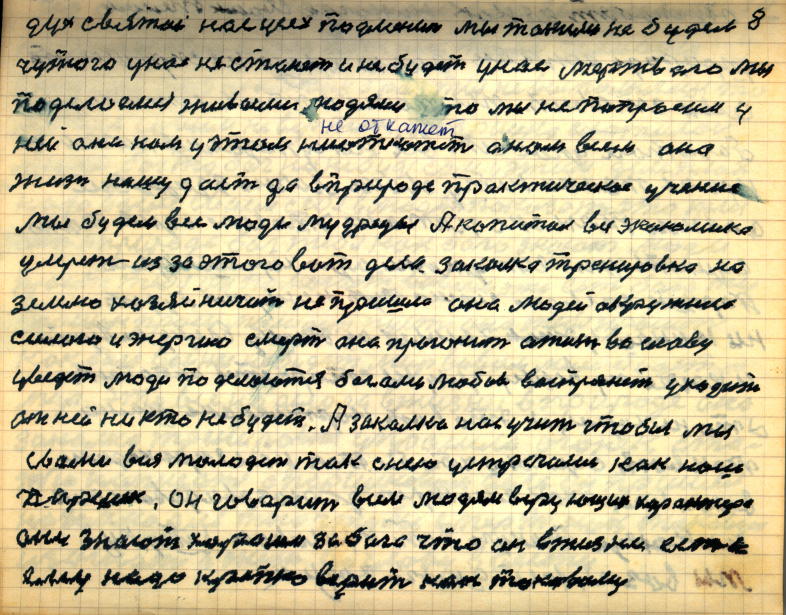 дух святой нас усех подменит мы такими не будем 8
чужого у нас не станет и не будет у нас мертваго мы
поделаемся живыми людями то мы не потробуем у
не откажет
ней она нам у этом ниоткажет а нам всем она
жизь нашу даст да в природе практическое учение
мы будем все люди мудреды А копитал вся экономика
умрет из за этого вот дела закалка тренировка на
землю хозяйничать не пришла она людей окружит
силою и энергию смерт она прогонит а жизь во славу
уведет люди поделаются богами любов воспрянет уходить
от ней никто не будет. А закалка научит чтобы мы
с вами вся молодеж так с нею устречали как наш
. Он говорит всем людям верующих характера
они знают хорошо за бога что он в жизни есть
ему надо крепко верить как таковому